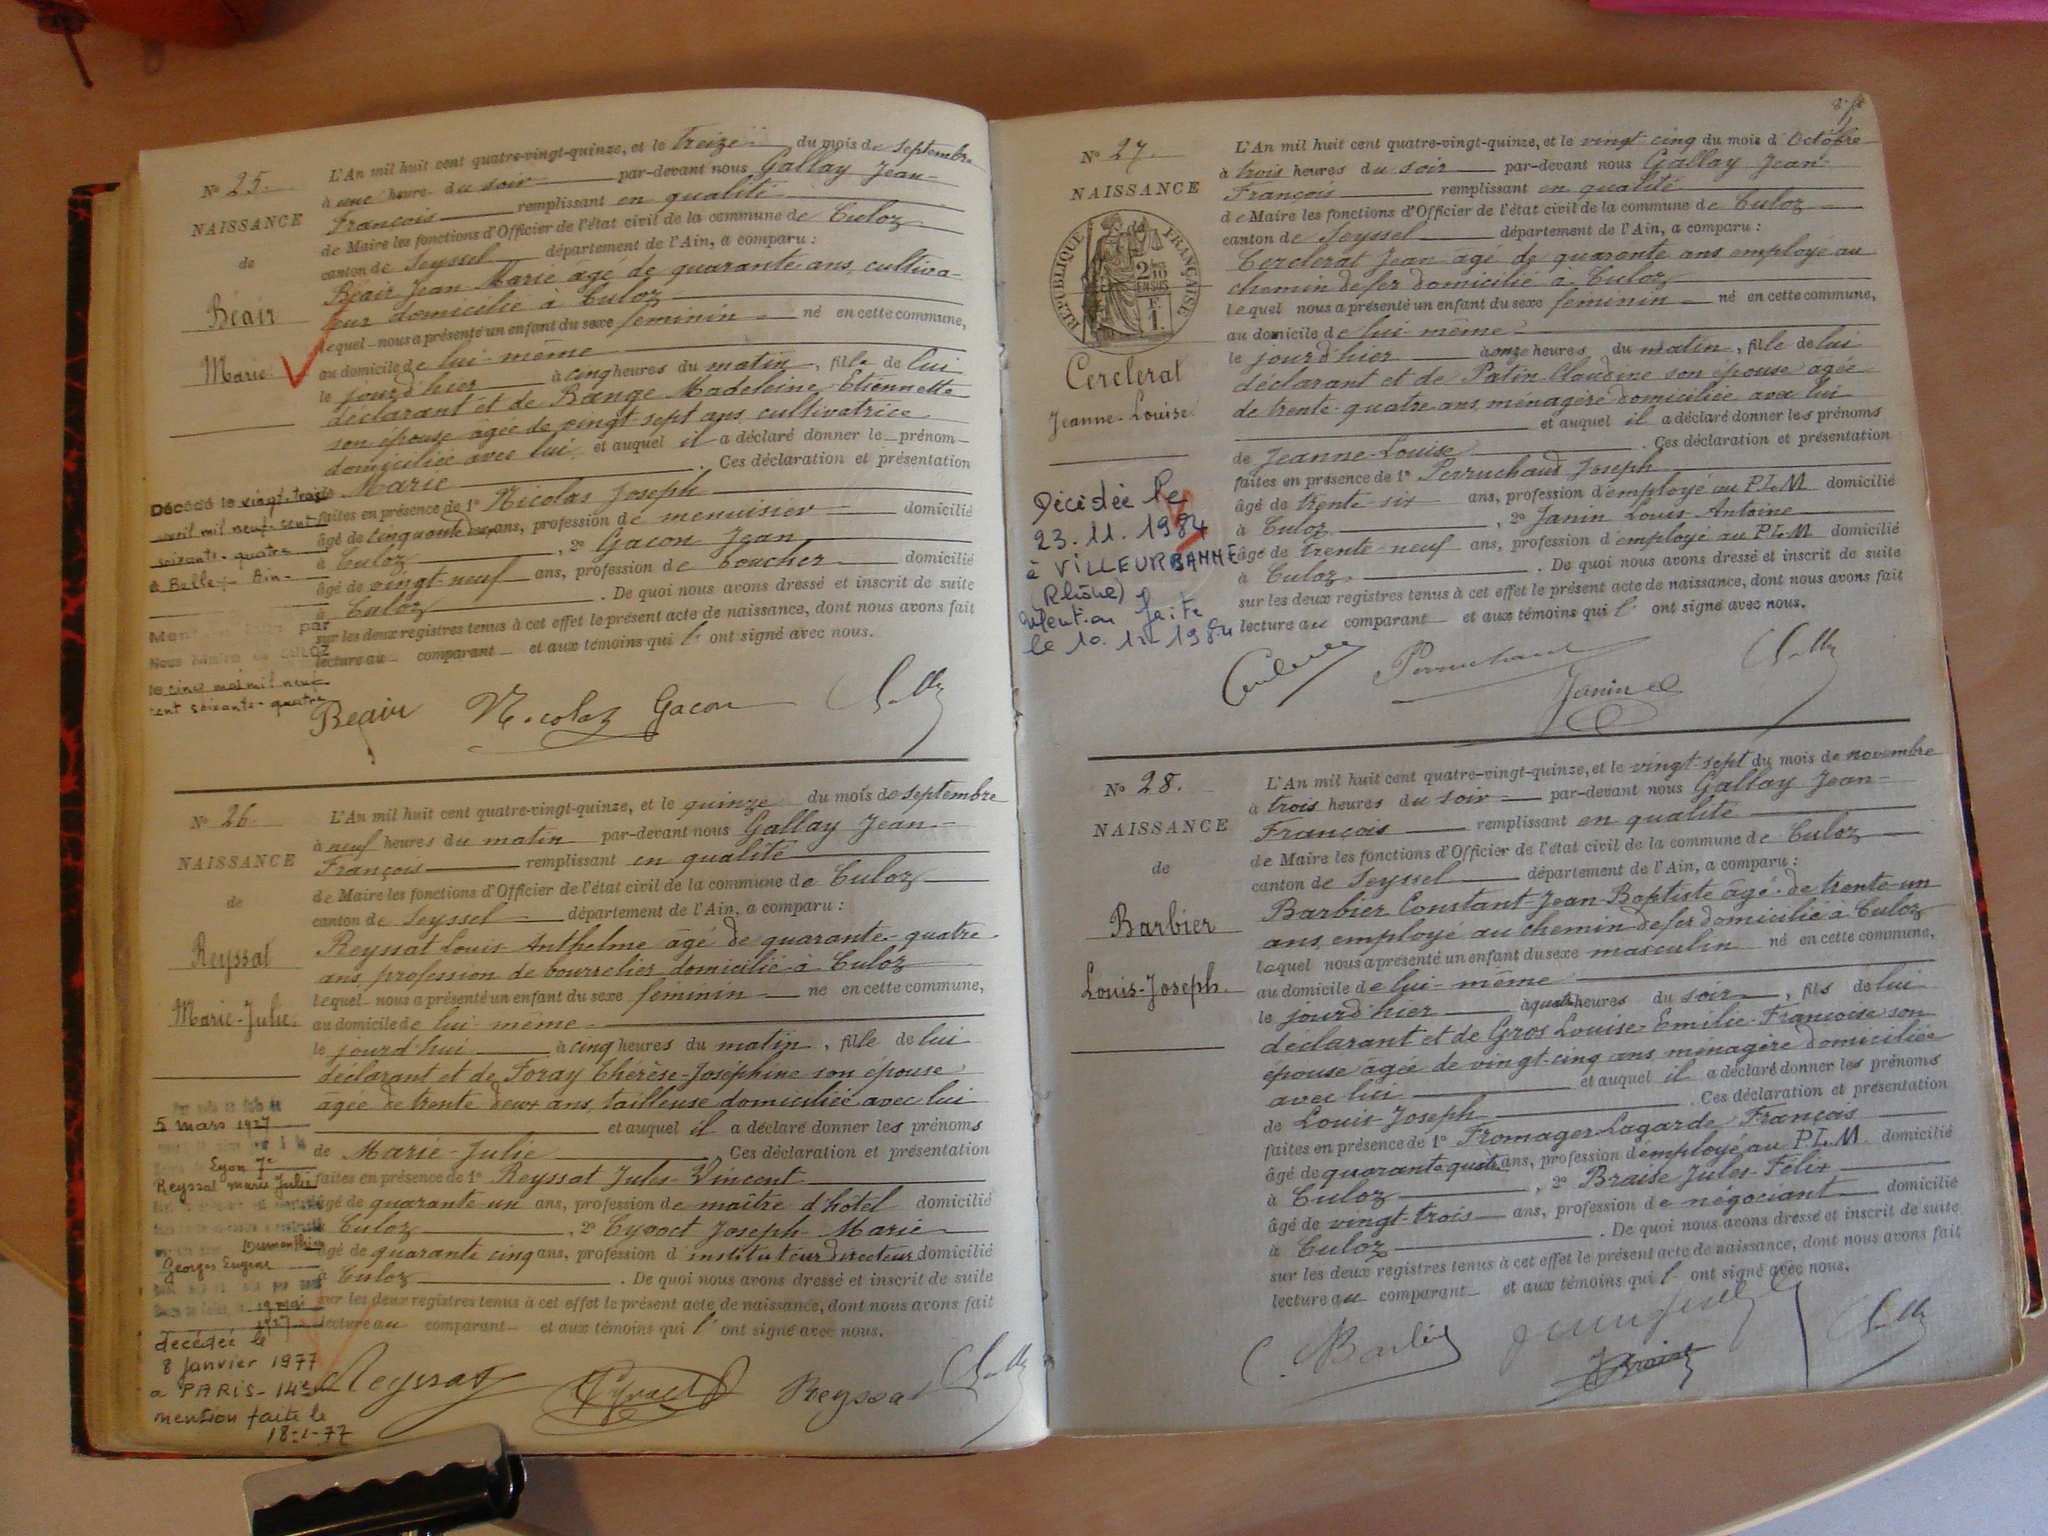 N° 25.
NAISSANCE
de
Béair
Marie
L'An mil huit cent quatre-vingt-quinze, et le treize du mois de septembre
à une heure du soir par-devant nous Gallay Jean-
François remplissant en qualité
de Maire les fonctions d'Officier de l'état civil de la commune de Culoz
canton de Seyssel département de l'Ain, a comparu :
Béair Jean Marie âgé de quarante ans, cultiva-
teur domicilié à Culoz
lequel nous a présenté un enfant du sexe féminin né en cette commune,
au domicile de lui-même
le jourd'hier à cinq heures du matin, fille de lui
déclarant et de Range Madeleine Etiennette
son épouse agée de vingt sept ans, cultivatrice
domiciliée avec lui, et auquel il a déclaré donner le prénom
Marie . Ces déclaration et présentation
faites en présence de 1° Nicolas Joseph
âgé de cinquante deux ans, profession de menuisier domicilié
à Culoz , 2° Gacon Jean
âgé de vingt-neuf ans, profession de boucher domicilié
à Culoz . De quoi nous avons dressé et inscrit de suite
sur les deux registres tenus à cet effet le présent acte de naissance, dont nous avons fait
lecture au comparant et aux témoins qui l' ont signé avec nous.
Décédé le vingt-trois
avril mil neuf-cent
soixante-quatre
à Belley Ain
par
CULOZ
le cinq mai mil neuf
cent soixante-quatre
Béair Nicolas Gacon
N° 26.
NAISSANCE
de
Reyssat
Marie-Julie.
L'An mil huit cent quatre-vingt-quinze, et le quinze du mois de septembre
à neuf heures du matin par-devant nous Gallay Jean-
François remplissant en qualité
de Maire les fonctions d'Officier de l'état civil de la commune de Culoz
canton de Seyssel département de l'Ain, a comparu :
Reyssat Louis Anthelme âgé de quarante-quatre
ans, profession de bourrelier domicilié à Culoz
lequel nous a présenté un enfant du sexe féminin né en cette commune,
au domicile de lui-même
le jourd'hui à cinq heures du matin, fille de lui
déclarant et de Foray Thérèse-Joséphine son épouse
âgée de trente deux ans, tailleuse domiciliée avec lui
et auquel il a déclaré donner les prénoms
de Marie-Julie . Ces déclaration et présentation
faites en présence de 1° Reyssat Jules-Vincent
âgé de quarante un ans, profession de maître d'hôtel domicilié
Culoz , 2° Cyvoct Joseph-Marie
âgé de quarante cinq ans, profession d'instituteur directeur domicilié
à Culoz . De quoi nous avons dressé et inscrit de suite
sur les deux registres tenus à cet effet le présent acte de naissance, dont nous avons fait
lecture au comparant et aux témoins qui l' ont signé avec nous.
5 mars 1927
Lyon 7e
Reyssat Marie Julie
Georges Eugène
19 mai
1927
decédée le
8 Janvier 1977
a PARIS-14e
mention faite le
18-1-77
Reyssat Cyvoct Reyssat
N° 27.
NAISSANCE
RÉPUBLIQUE FRANÇAISE
2/10
EN SUS
F.
1.
Cerclerat
Jeanne-Louise.
L'An mil huit cent quatre-vingt-quinze, et le vingt cinq du mois d'Octobre
à trois heures du soir par-devant nous Gallay Jean
François remplissant en qualité
de Maire les fonctions d'Officier de l'état civil de la commune de Culoz
canton de Seyssel département de l'Ain, a comparu :
Cerclerat Jean âgé de quarante ans employé au
chemin de fer domicilié à Culoz
lequel nous a présenté un enfant du sexe féminin né en cette commune,
au domicile de lui-même
le jourd'hier à onze heures du matin, fille de lui
déclarant et de Patin Claudine son épouse agée
de trente-quatre ans, ménagère domiciliée avec lui
et auquel il a déclaré donner les prénoms
de Jeanne-Louise . Ces déclaration et présentation
faites en présence de 1° Perruchaud Joseph
âgé de trente six ans, profession d'employé au P.L.M domicilié
à Culoz , 2° Janin Louis Antoine
âgé de trente-neuf ans, profession d'employé au P.L.M domicilié
à Culoz . De quoi nous avons dressé et inscrit de suite
sur les deux registres tenus à cet effet le présent acte de naissance, dont nous avons fait
lecture au comparant et aux témoins qui l' ont signé avec nous.
Décédée le
23.11.1984
à VILLEURBANNE
(Rhône)
Mention faite
le 10.12.1984
Perruchaud
Janin
N° 28.
NAISSANCE
de
Barbier
Louis-Joseph.
L'An mil huit cent quatre-vingt-quinze, et le vingt-sept du mois de novembre
à trois heures du soir par-devant nous Gallay Jean-
François remplissant en qualité
de Maire les fonctions d'Officier de l'état civil de la commune de Culoz
canton de Seyssel département de l'Ain, a comparu :
Barbier Constant-Jean-Baptiste âgé de trente-un
ans, employé au chemin de fer domicilié à Culoz
lequel nous a présenté un enfant du sexe masculin né en cette commune,
au domicile de lui-même
le jourd'hier à quatre heures du soir, fils de lui
déclarant et de Gros Louise-Emilie-Françoise son
épouse âgée de vingt-cinq ans ménagère domiciliée
avec lui et auquel il a déclaré donner les prénoms
de Louis-Joseph . Ces déclaration et présentation
faites en présence de 1° Fromager Lagarde François
âgé de quarante quatre ans, profession d'employé au P.L.M. domicilié
à Culoz , 2° Braise Jules-Félix
âgé de vingt-trois ans, profession de négociant domicilié
à Culoz . De quoi nous avons dressé et inscrit de suite
sur les deux registres tenus à cet effet le présent acte de naissance, dont nous avons fait
lecture au comparant et aux témoins qui l' ont signé avec nous.
C. Barbier
Braise